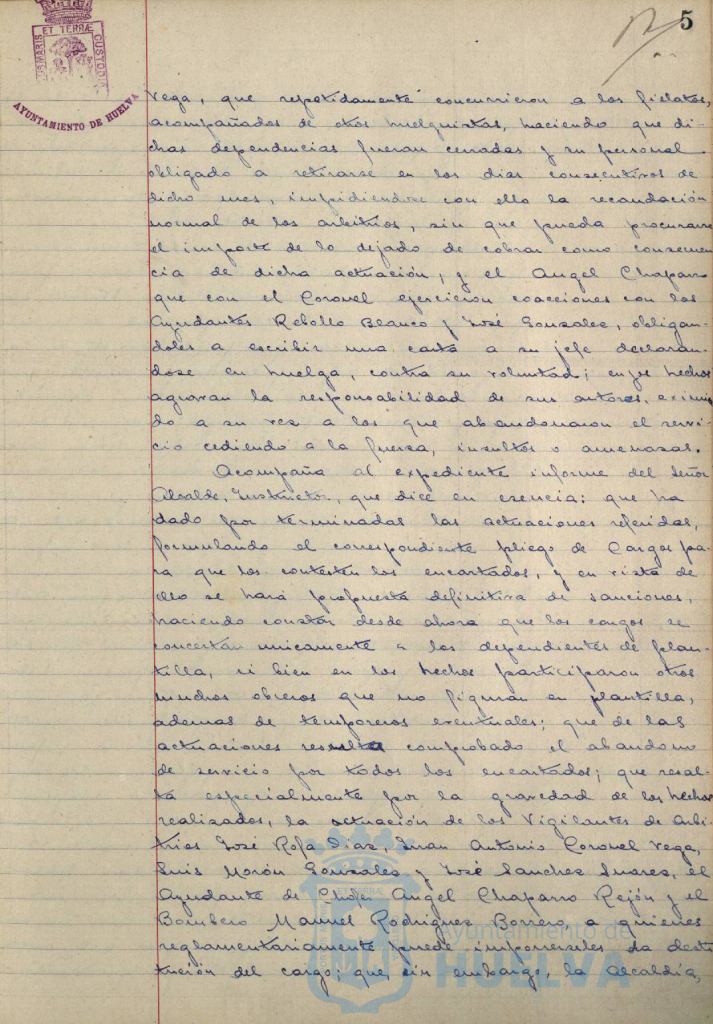 5
ET TERRÆ
CUSTODIA
AYUNTAMIENTO DE HUELVA
Vega, que repetidamente concurrieron a los fielatos,
acompañados de otros huelguistas, haciendo que di-
chas dependencias fueran cerradas y su personal
obligado a retirarse en los dias consecutivos de
dicho mes, impidiendose con ello la recaudación
normal de los arbitrios, sin que pueda procurarse
el importe de lo dejado de cobrar como consecuen
cia de dicha actuación, y el Angel Chaparro
que con el Coronel ejercieron coacciones con los
Ayudantes Rebollo Blanco y José Gonzalez, obligan-
doles a escribir una carta a su jefe declaran-
dose en huelga, contra su voluntad; cuyos hechos
agravan la responsabilidad de sus autores, eximien
do a su vez a los que abandonaron el servi-
cio cediendo a la fuerza, insultos o amenazas.
Acompaña al expediente informe del Señor
Alcalde, Instructor, que dice en esencia: que ha
dado por terminadas las actuaciones referidas,
formulando el correspondiente pliego de Cargos pa-
ra que los contesten los encartados, y en vista de
ello se hará propuesta definitiva de sanciones,
haciendo constar desde ahora que los cargos se
concretan unicamente a los dependientes de plan-
tilla, si bien en los hechos participaron otros
muchos obreros que no figuran en plantilla,
ademas de temporeros eventuales; que de las
actuaciones resulta comprobado el abandono
de servicio por todos los encartados; que resal-
ta especialmente por la gravedad de los hechos
realizados, la actuación de los Vigilantes de Arbi-
trios José Rofa Diaz, Juan Antonio Coronel Vega,
Luis Morón Gonzalez y José Sanchez Suarez, el
Ayudante de Chofer Angel Chaparro Rejón y el
Bombero Manuel Rodriguez Borrero, a quienes
reglamentariamente puede imponerseles la desti
tución del cargo; que, sin embargo, la Alcaldía,
Ayuntamiento de
HUELVA